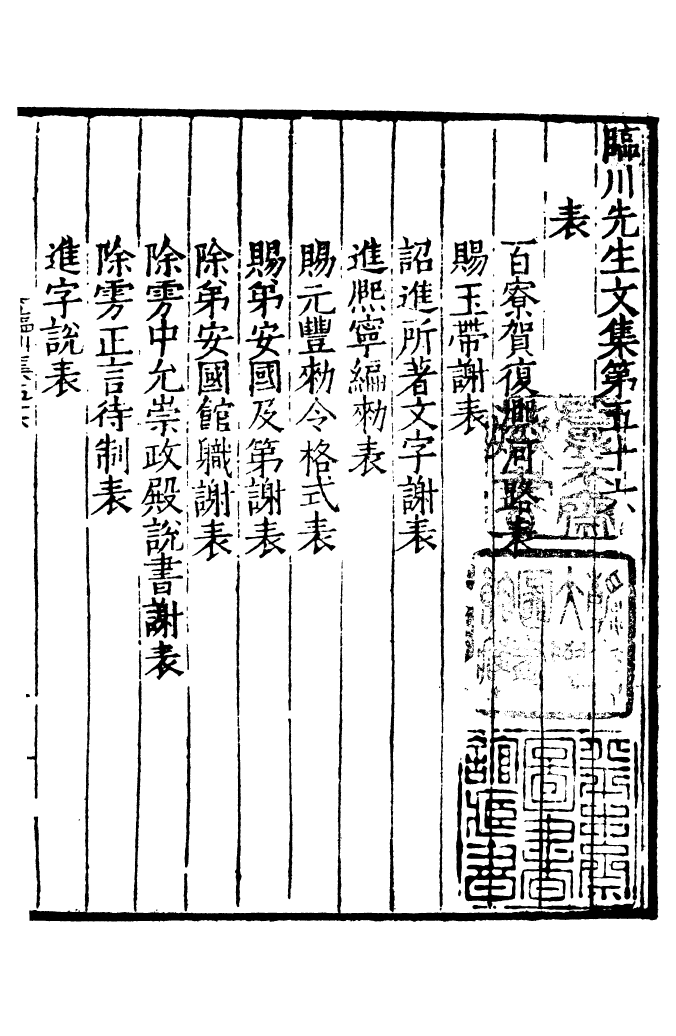 臨川先生文集第五十六
表
百寮賀復熙河路表
賜玉帶謝表
詔進所著文字謝表
進熙寧編勑表
賜元豐勑令格式表
賜弟安國及第謝表
除弟安國館職謝表
除雱中允崇政殿說書謝表
除雱正言待制表
進字說表